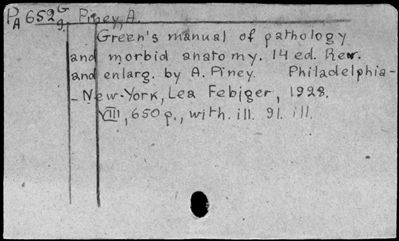 PA 652 G Piney, A.
9.
Green's manual of pathology
and morbid anatomy. 14 ed. Rev.
and enlarg. by A. Piney. Philadelphia-
- New-York, Lea Febiger, 1928.
VIII, 650 p., with. ill. 91. ill.